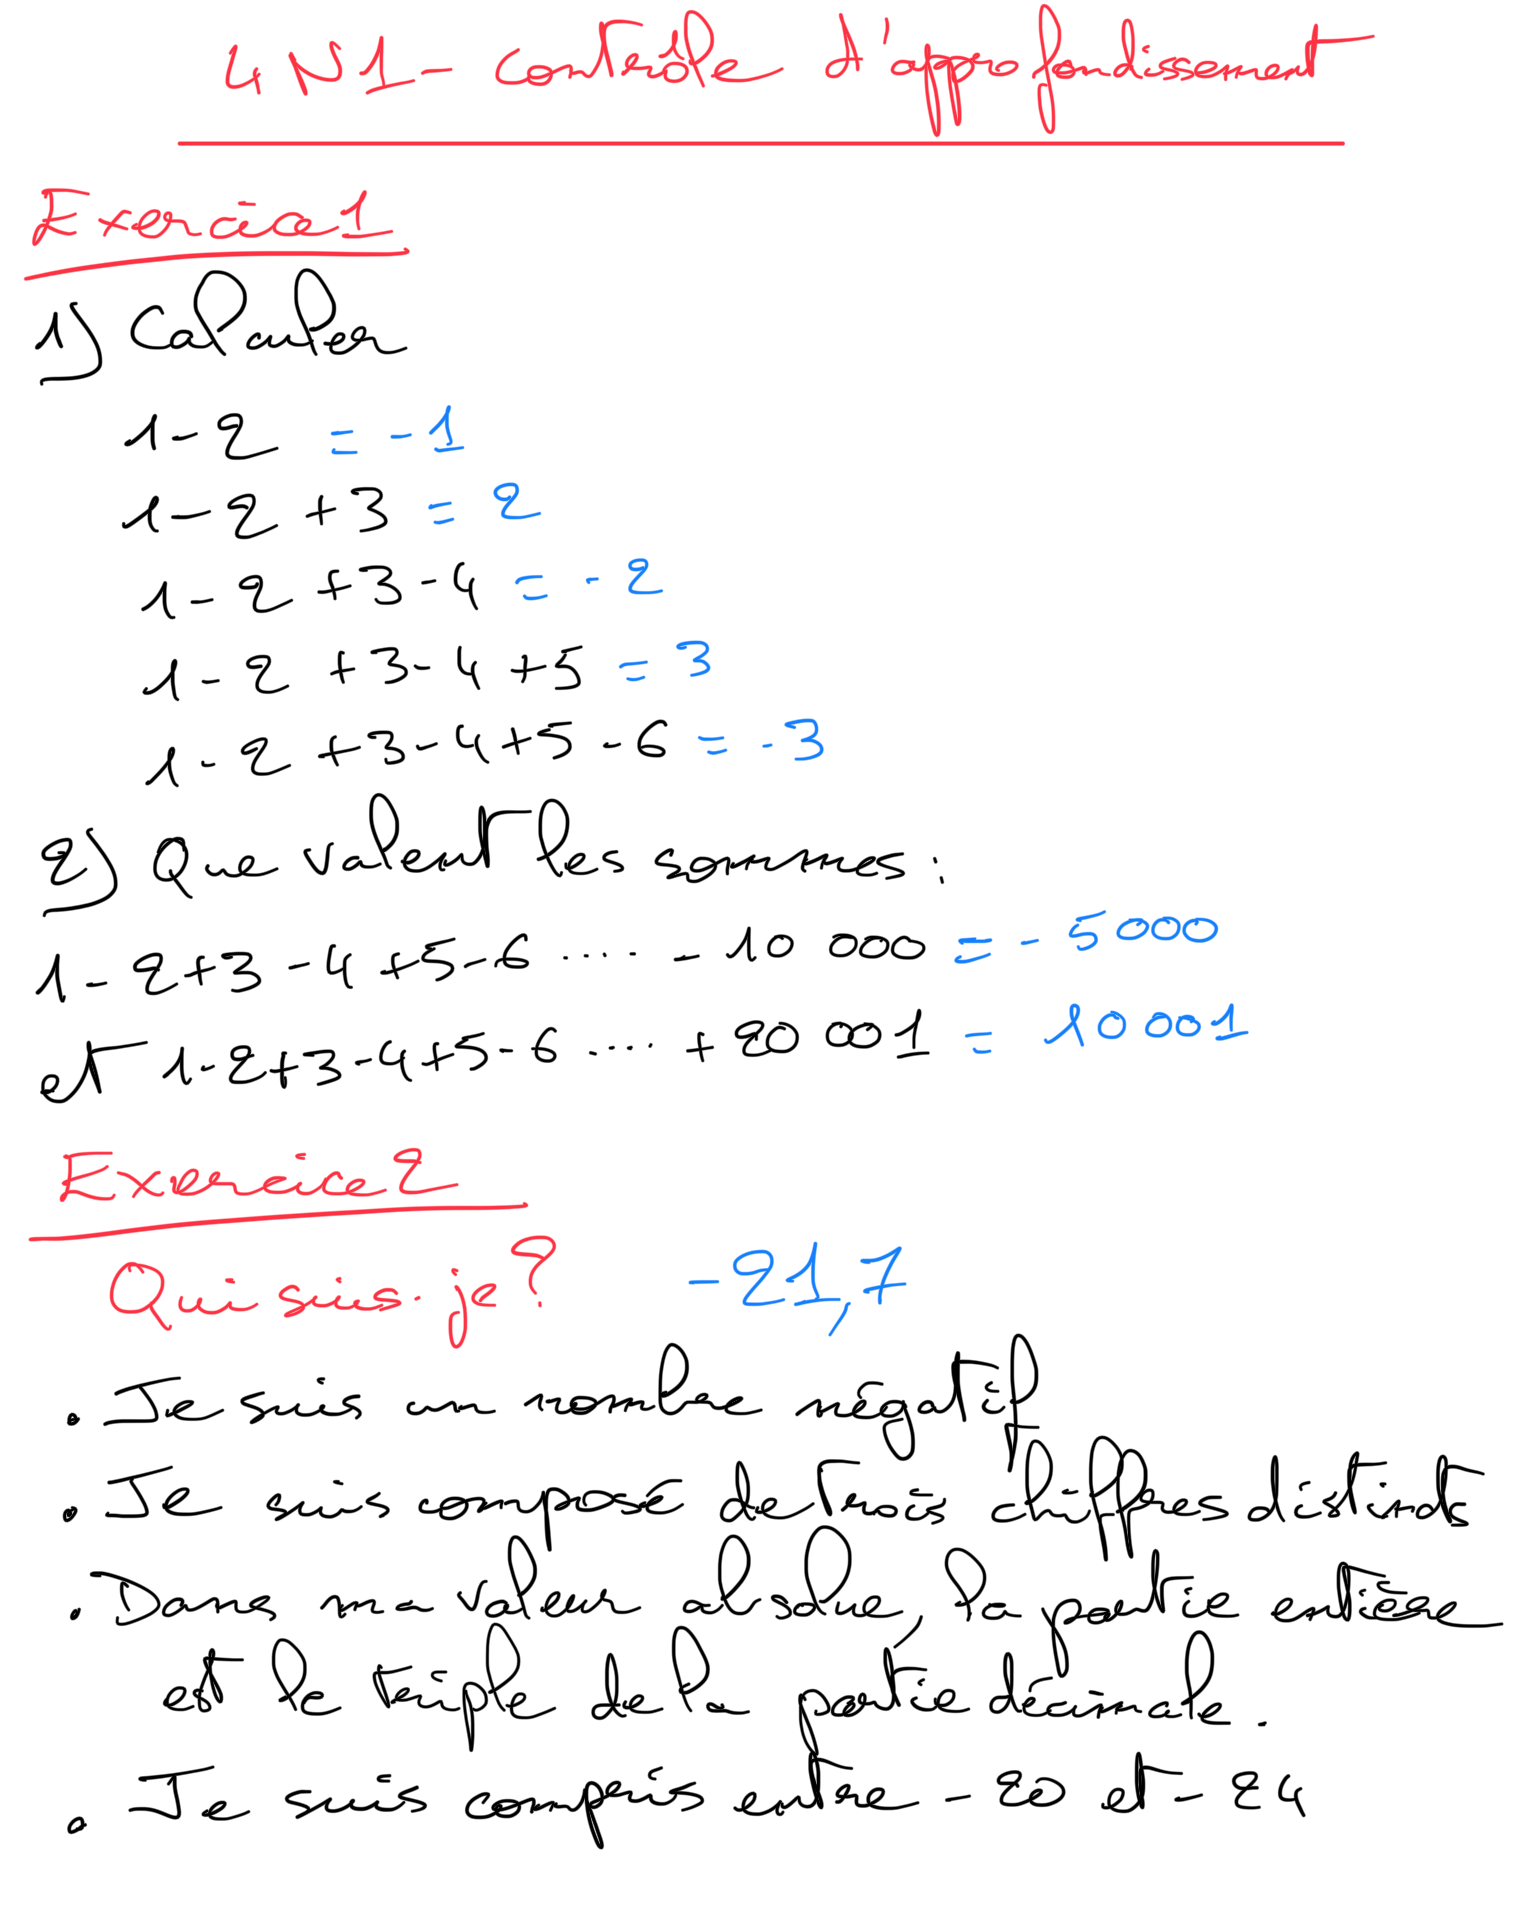 4N1 - contrôle d'approfondissement
Exercice 1
1) Calculer
1 - 2 = - 1
1 - 2 + 3 = 2
1 - 2 + 3 - 4 = - 2
1 - 2 + 3 - 4 + 5 = 3
1 - 2 + 3 - 4 + 5 - 6 = - 3
2) Que valent les sommes :
1 - 2 + 3 - 4 + 5 - 6 ..... - 10 000 = - 5000
et 1 - 2 + 3 - 4 + 5 - 6 ..... + 20 001 = 10 001
Exercice 2
Qui suis-je ? - 21,7
. Je suis un nombre négatif
. Je suis composé de trois chiffres distincts
. Dans ma valeur absolue, la partie entière
est le triple de la partie décimale.
. Je suis compris entre - 20 et - 24